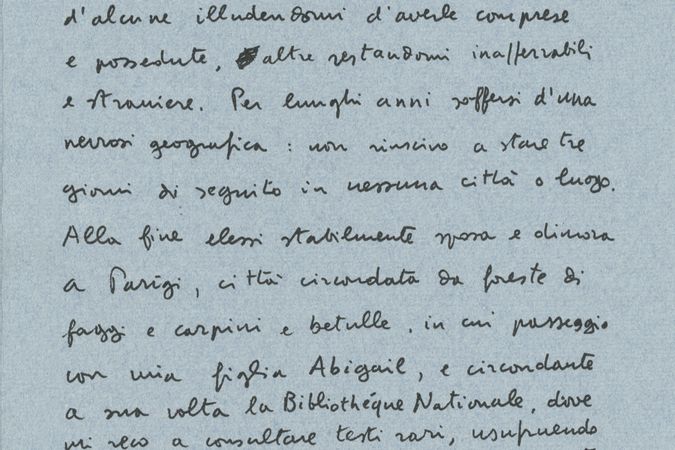 d'alcune illudendomi d'averle comprese
e possedute, altre restandomi inafferrabili
e straniere. Per lunghi anni soffersi d'una
nevrosi geografica : non riuscivo a stare tre
giorni di seguito in nessuna città o luogo.
Alla fine elessi stabilmente sposa e dimora
a Parigi, città circondata da foreste di
faggi e carpini e betulle, in cui passeggio
con mia figlia Abigail, e circondante
a sua volta la Bibliothéque Nationale, dove
mi reco a consultare testi rari, usufruendo